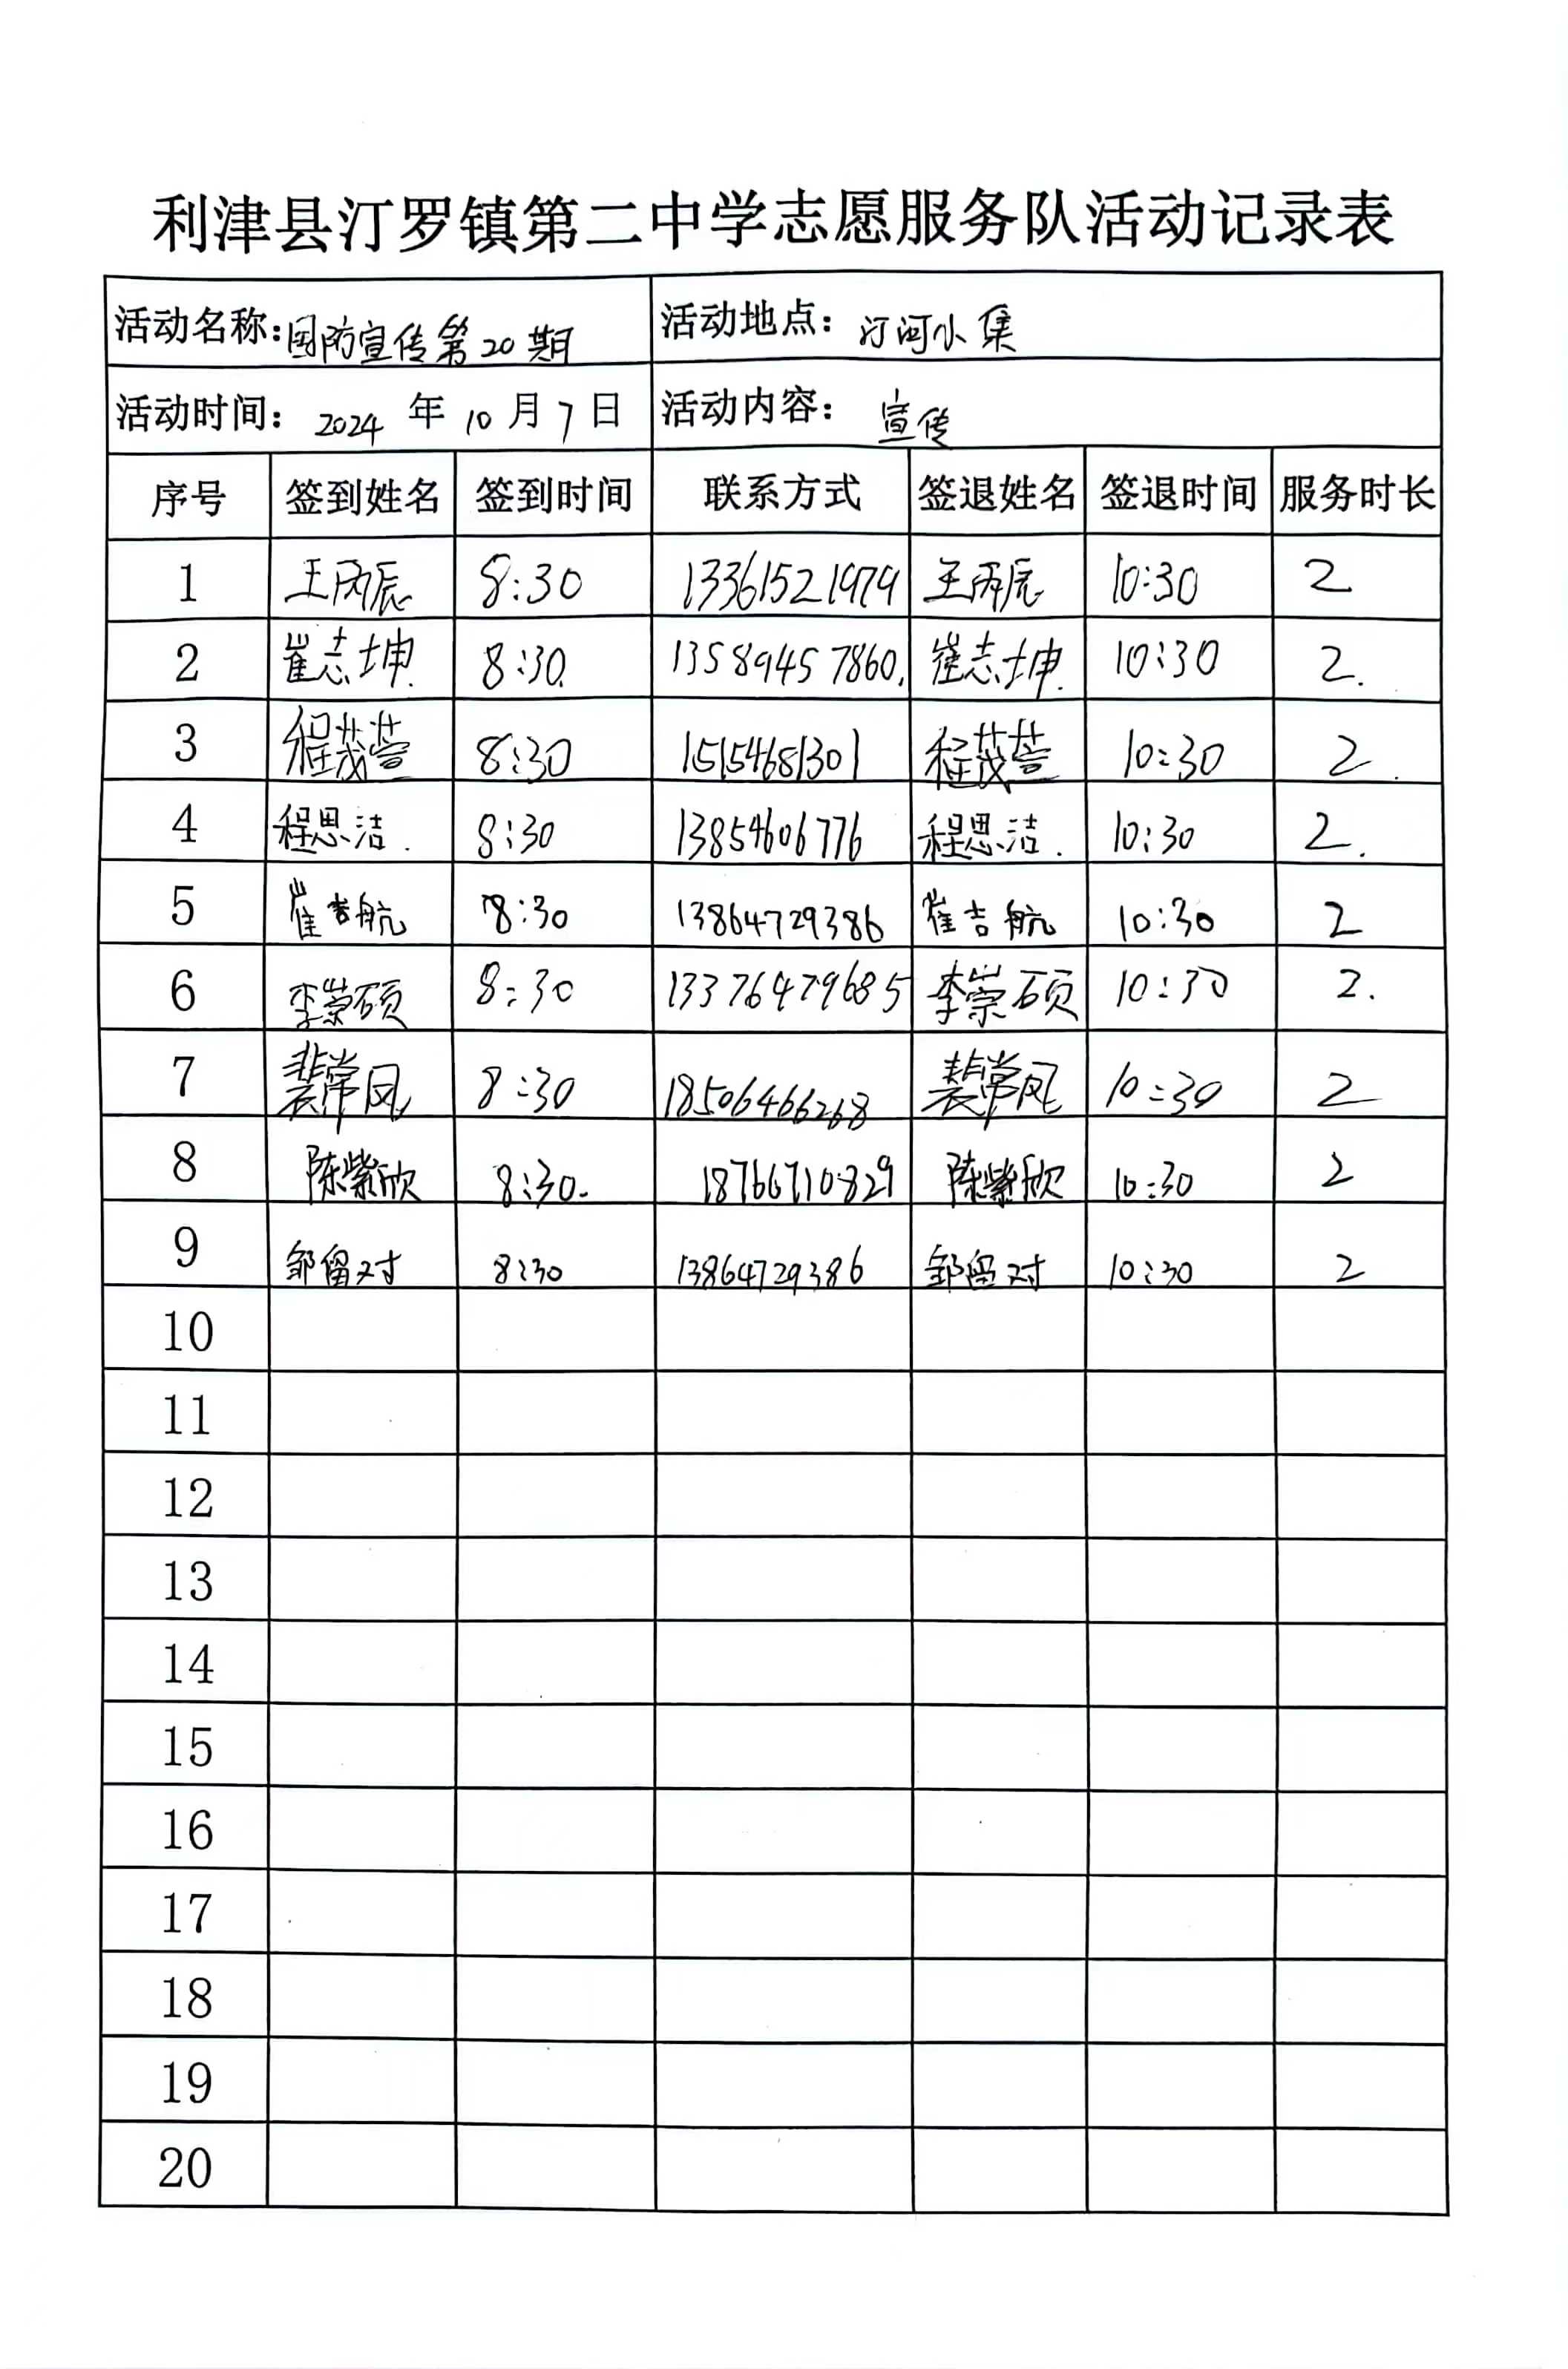 利津县汀罗镇第二中学志愿服务队活动记录表
活动名称:国防宣传第20期 活动地点: 汀河小集
活动时间: 2024 年 10 月 7 日 活动内容: 宣传
序号 签到姓名 签到时间 联系方式 签退姓名 签退时间 服务时长
1 王丙辰 8:30 13361521979 王丙辰 10:30 2
2 崔志坤. 8:30. 13589457860. 崔志坤. 10:30 2.
3 程茂萱 8:30 15154681301 程茂萱 10:30 2.
4 程思洁. 8:30 13854606776 程思洁. 10:30 2.
5 崔吉航 8:30 13864729386 崔吉航 10:30 2
6 李崇硕 8:30 13376479685 李崇硕 10:30 2.
7 裴常凤 8:30 18506466268 裴常凤 10:30 2
8 陈紫欣 8:30. 18766710829 陈紫欣 10:30 2
9 邹留对 8:30 13864729386 邹留对 10:30 2
10
11
12
13
14
15
16
17
18
19
20